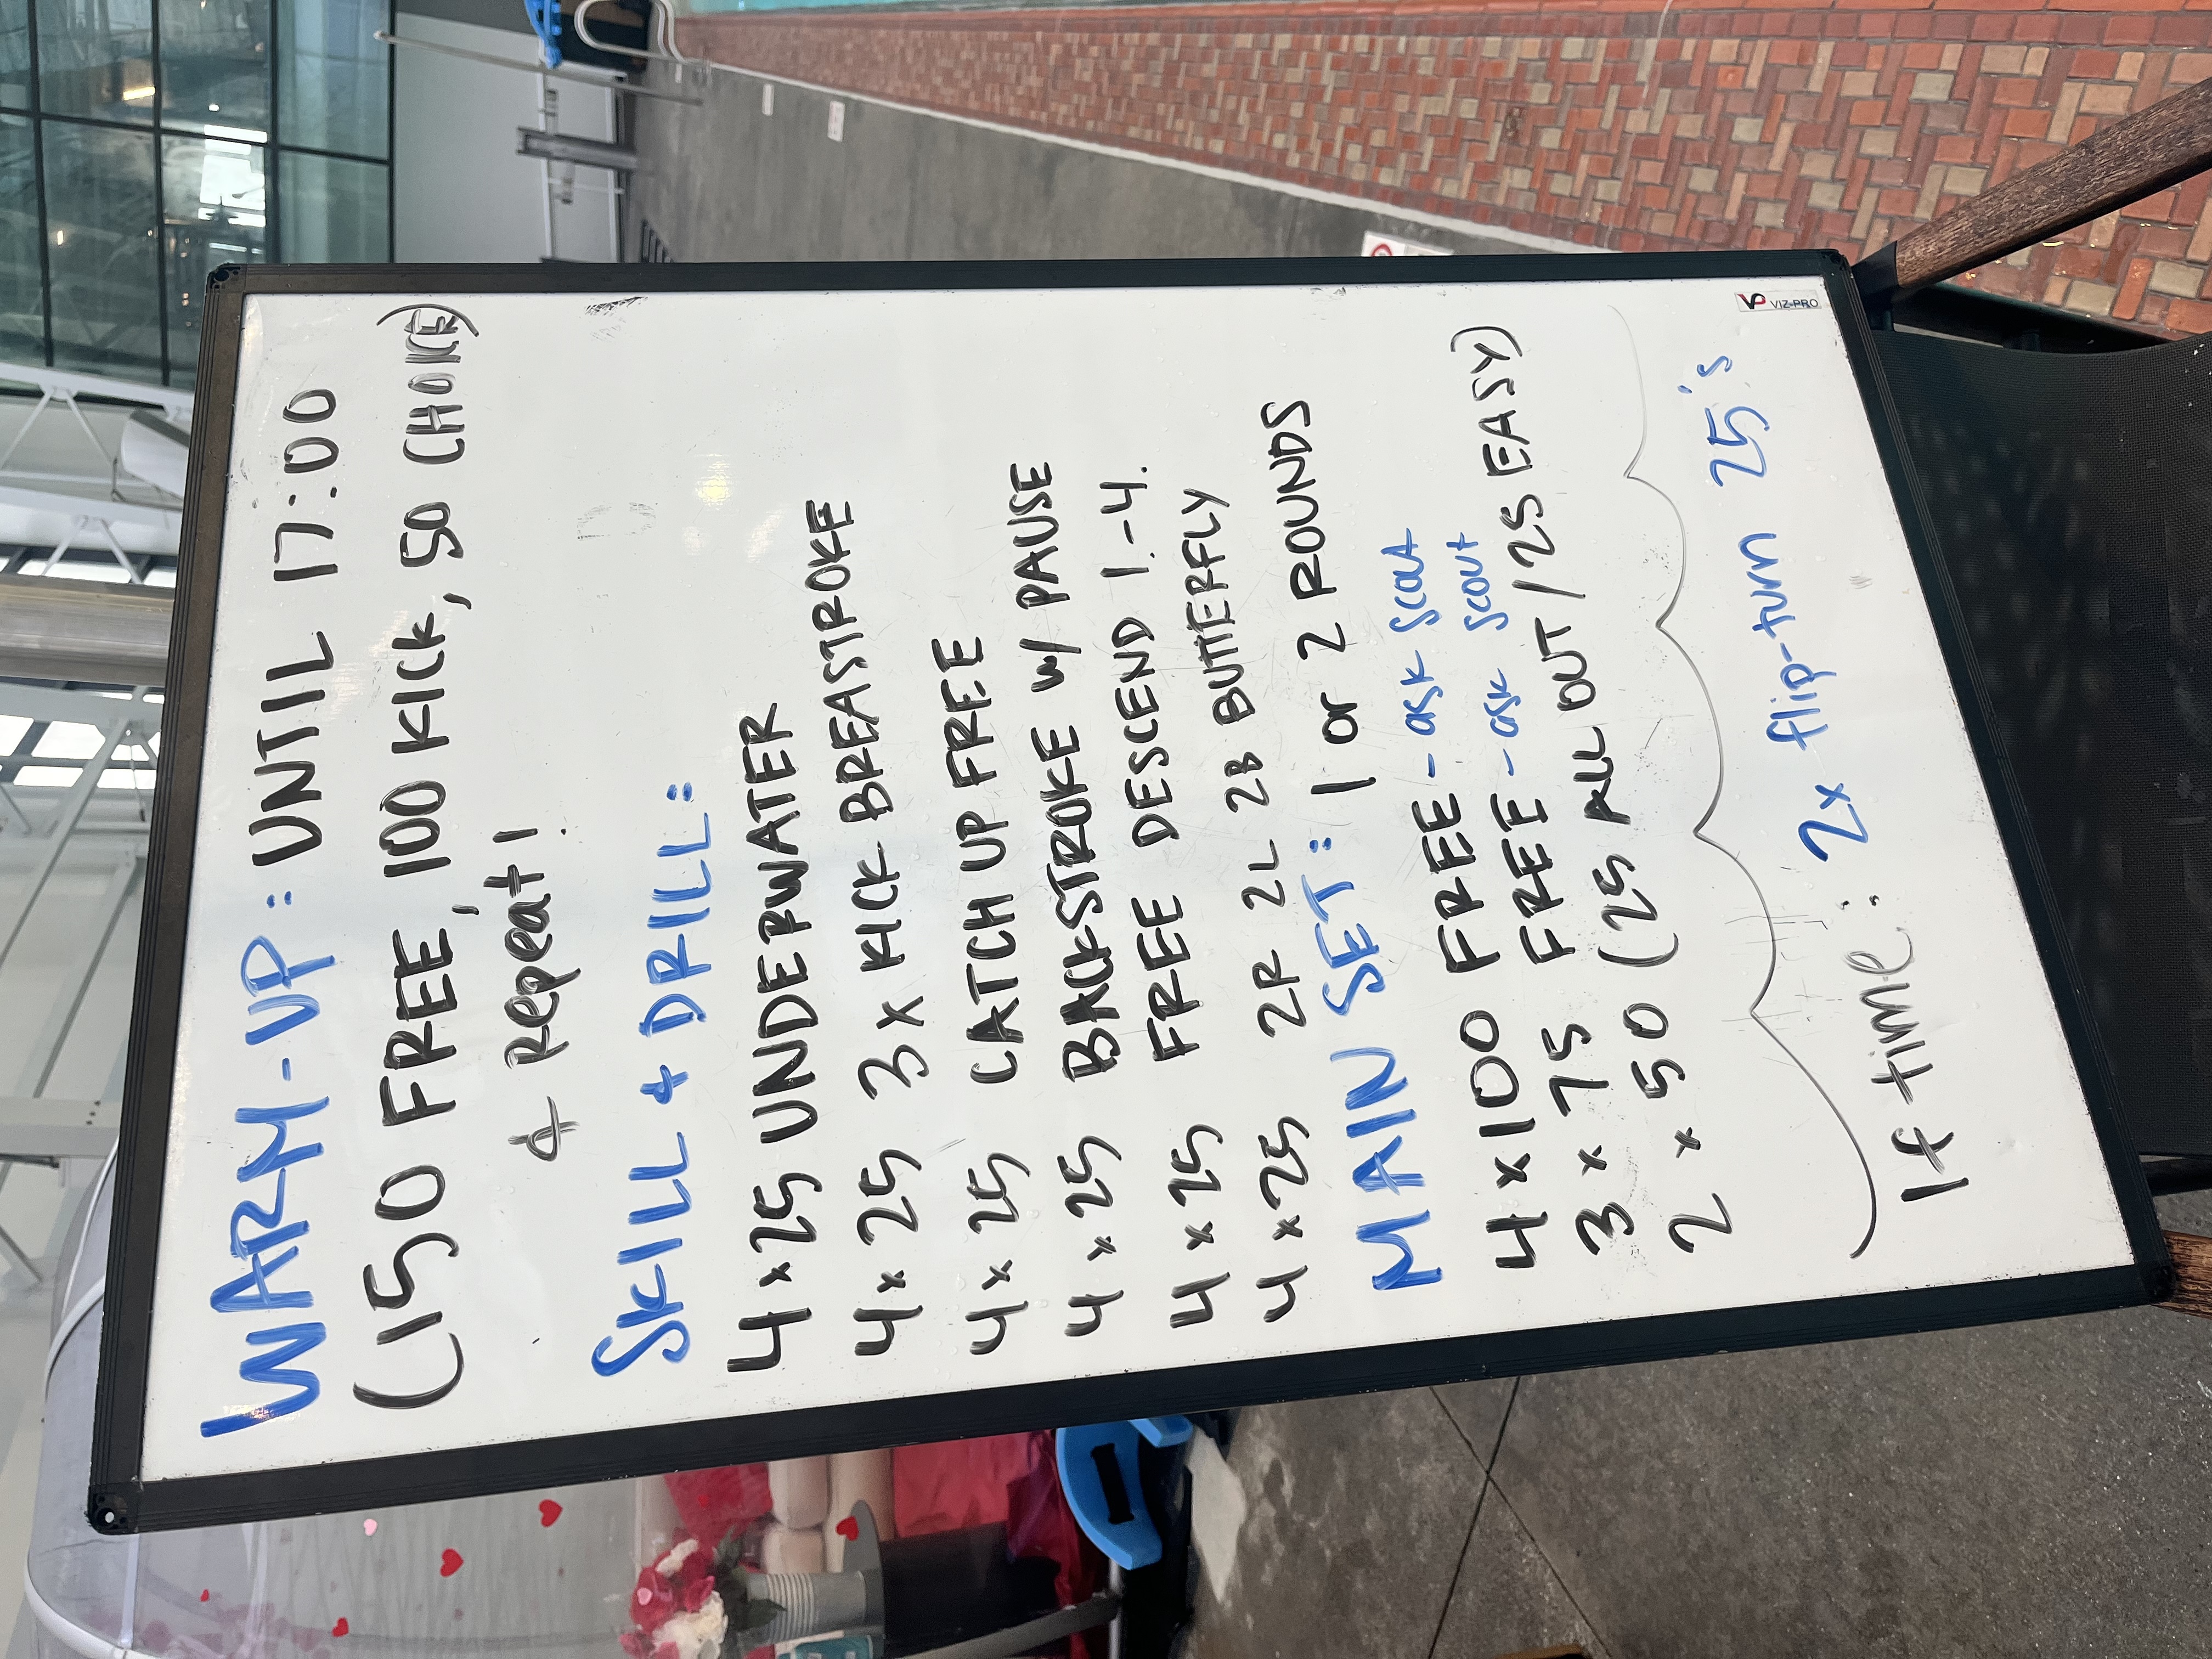 WARM-UP: UNTIL 17:00
(150 FREE, 100 KICK, 50 CHOICE)
+ Repeat!
SKILL + DRILL:
4 x 25 UNDERWATER
4 x 25 3 x KICK BREASTROKE
4 x 25 CATCH UP FREE
4 x 25 BACKSTROKE w/ PAUSE
4 x 25 FREE DESCEND 1-4.
4 x 25 2R 2L 2B BUTTERFLY
MAIN SET: 1 or 2 ROUNDS
4 x 100 FREE - ask scout
3 x 75 FREE - ask scout
2 x 50 (25 ALL OUT / 25 EASY)
If time: 2x flip-turn 25's
VIZ-PRO